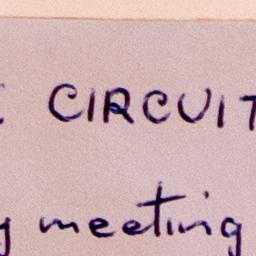 CIRCUIT
meeting